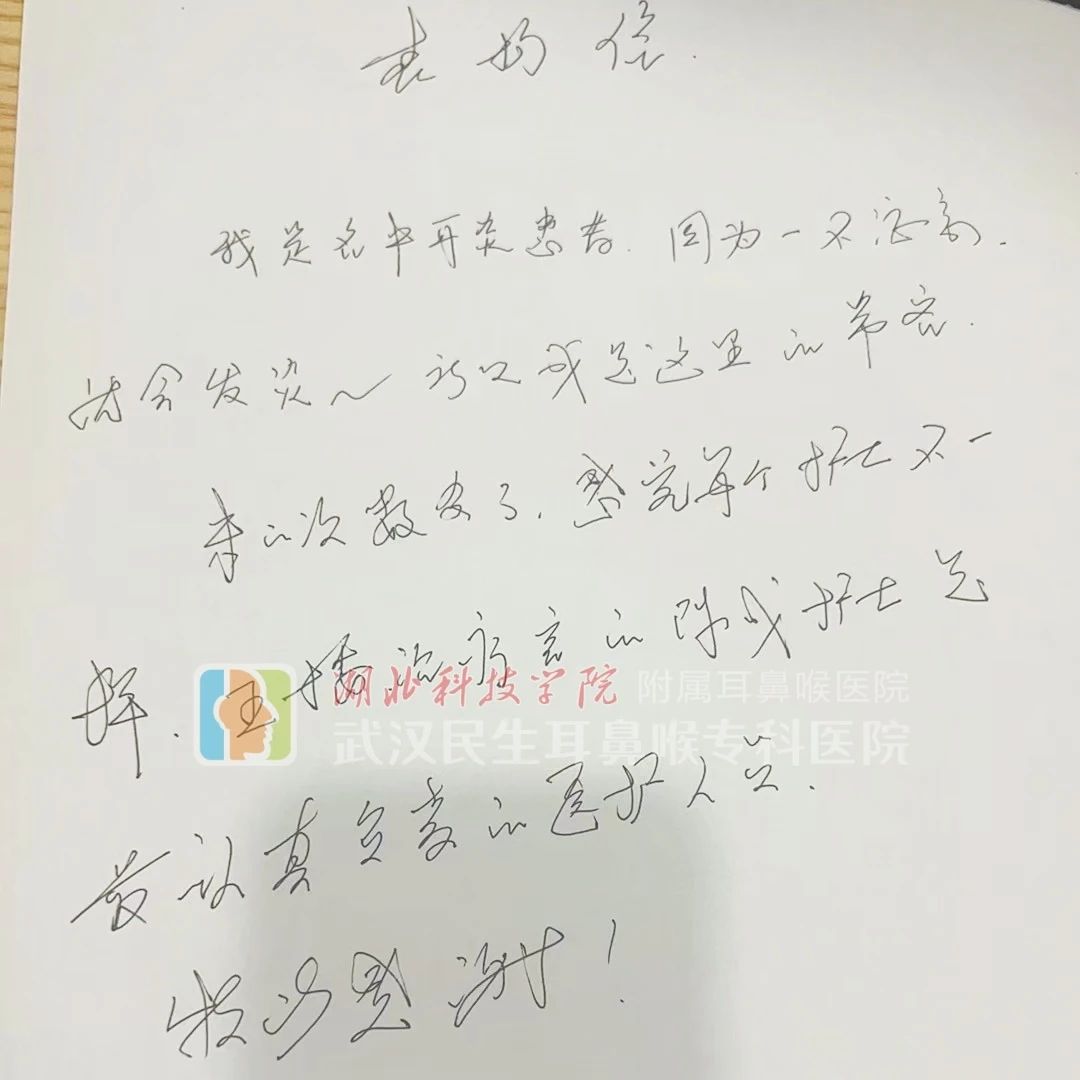 表扬信.
我是名中耳炎患者.因为一不注意.
就会发炎~所以我是这里的常客.
来的次数多了.感觉每个护士不一
样.五楼治疗室的陈成护士是
湖北科技学院 附属耳鼻喉医院
武汉民生耳鼻喉专科医院
最认真负责的医护人员.
特此感谢!